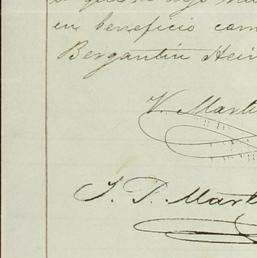 en beneficio com
Bergantin Hei
V. Marti
J. T. Mart